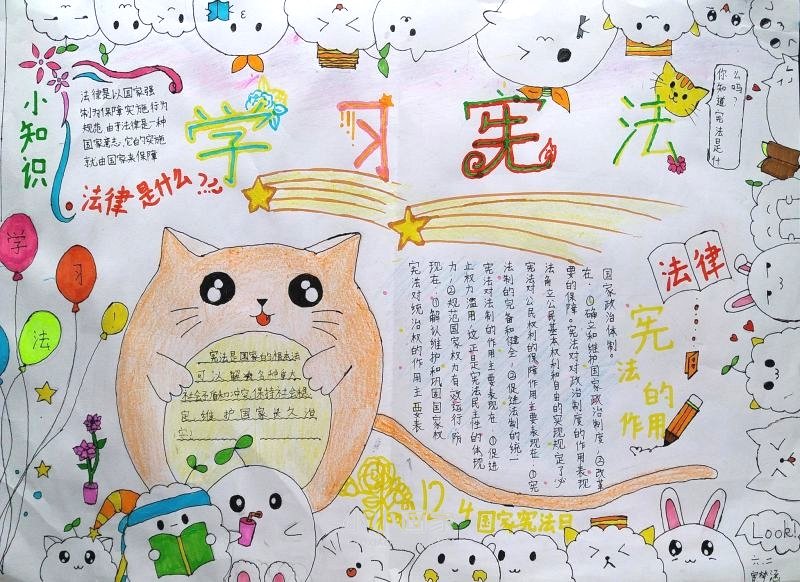 学习宪法
小知识
法律是以国家强
制为保障实施，行为
规范 由于法律是一种
国家意志，它的实施
就由国家来保障
法律是什么？
么吗？
你知道宪法是什
学
习
法
宪法是国家的根本法
可以解决各种重大
社会矛盾和冲突，保持社会稳
定，维护国家长久治
安！
法律
宪法的作用
国家政治体制。
在：①确立和维护国家政治制度，②改革
要的保障。宪法对政治制度的作用表现
法角立公民基本权利和自由的实现规定了必
宪法对公民权利的保障作用主要表现在：①宪
法制的完备和健全，②促进法制的统一
宪法对法制的作用主要表现在：①促进
止权力滥用 这正是宪法民主性的体现
力，②规范国家权力有效运行，防
现在：①解认维护和巩固国家权
宪法对统治权的作用主要表
12 4 国家宪法日
Look!
六.二